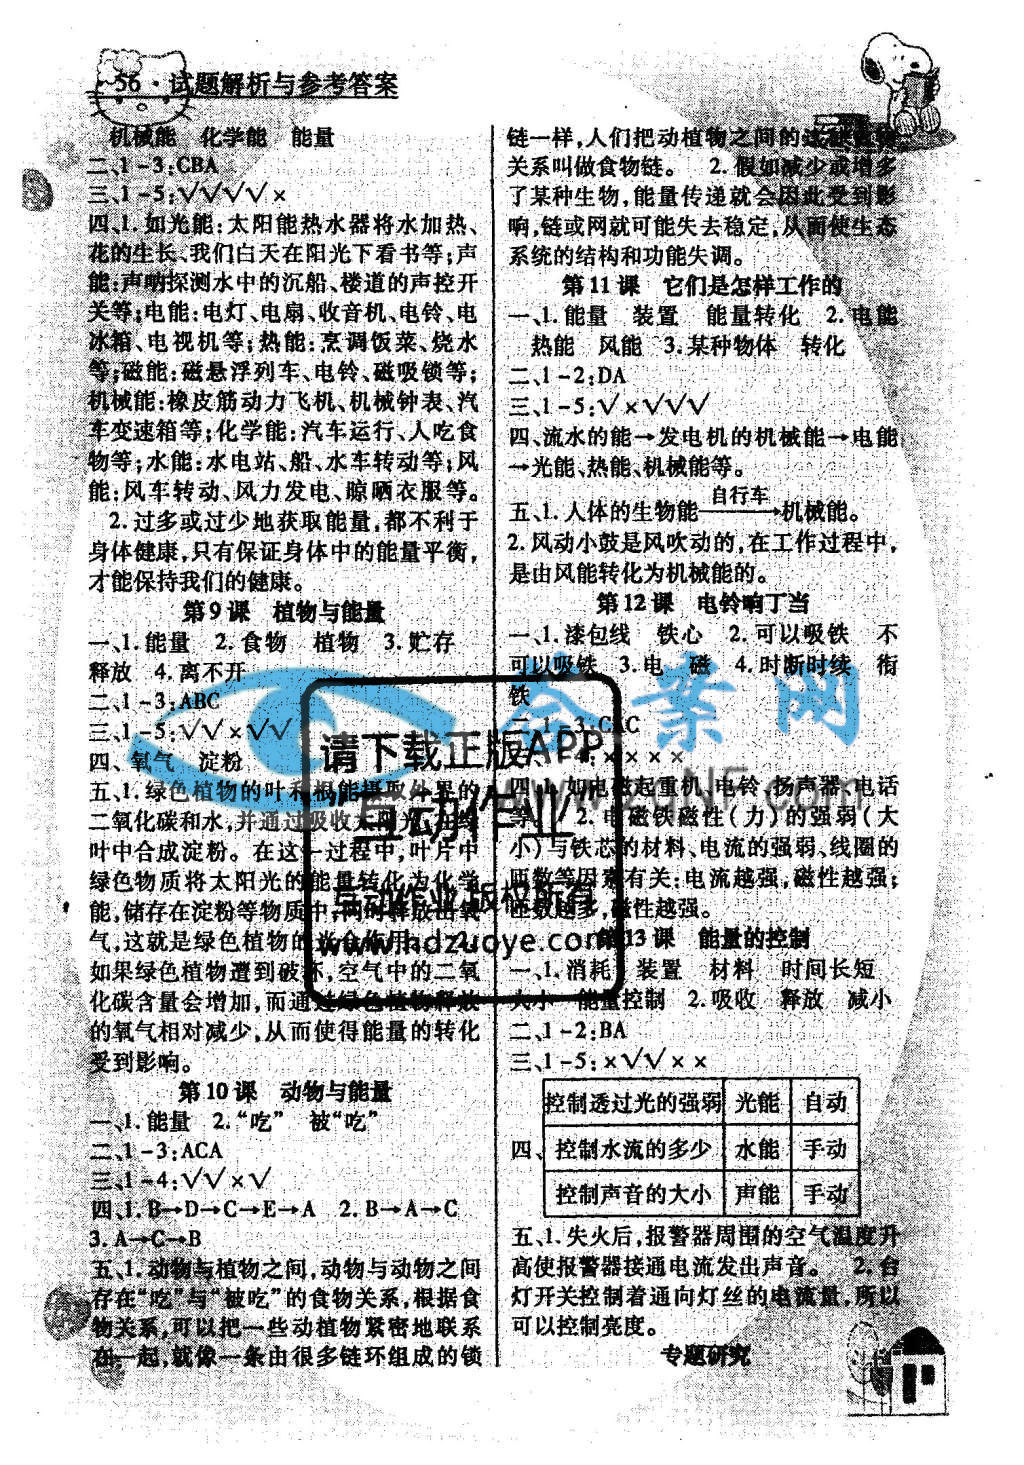 56·试题解析与参考答案
机械能 化学能 能量
二、1-3:CBA
三、1-5:√√√√×
四、1.如光能:太阳能热水器将水加热、
花的生长、我们白天在阳光下看书等;声
能:声呐探测水中的沉船、楼道的声控开
关等;电能:电灯、电扇、收音机、电铃、电
冰箱、电视机等;热能:烹调饭菜、烧水
等;磁能:磁悬浮列车、电铃、磁吸锁等;
机械能:橡皮筋动力飞机、机械钟表、汽
车变速箱等;化学能:汽车运行、人吃食
物等;水能:水电站、船、水车转动等;风
能:风车转动、风力发电、晾晒衣服等。
2.过多或过少地获取能量,都不利于
身体健康,只有保证身体中的能量平衡,
才能保持我们的健康。
第9课 植物与能量
一、1.能量 2.食物 植物 3.贮存
释放 4.离不开
二、1-3:ABC
三、1-5:√√×√√
四、氧气 淀粉
五、1.绿色植物的叶和根能摄取外界的
二氧化碳和水,并通过吸收太阳光,在绿
叶中合成淀粉。在这一过程中,叶片中
绿色物质将太阳光的能量转化为化学
能,储存在淀粉等物质中,同时释放出氧
气,这就是绿色植物的光合作用。 2.
如果绿色植物遭到破坏,空气中的二氧
化碳含量会增加,而通过绿色植物释放
的氧气相对减少,从而使得能量的转化
受到影响。
第10课 动物与能量
一、1.能量 2.“吃” 被“吃”
二、1-3:ACA
三、1-4:√√×√
四、1.B→D→C→E→A 2.B→A→C
3.A→C→B
五、1.动物与植物之间,动物与动物之间
存在“吃”与“被吃”的食物关系,根据食
物关系,可以把一些动植物紧密地联系
在一起,就像一条由很多链环组成的锁
链一样,人们把动植物之间的这种食物
关系叫做食物链。 2.假如减少或增多
了某种生物,能量传递就会因此受到影
响,链或网就可能失去稳定,从而使生态
系统的结构和功能失调。
第11课 它们是怎样工作的
一、1.能量 装置 能量转化 2.电能
热能 风能 3.某种物体 转化
二、1-2:DA
三、1-5:√×√√√
四、流水的能→发电机的机械能→电能
→光能、热能、机械能等。
五、1.人体的生物能 自行车→机械能。
2.风动小鼓是风吹动的,在工作过程中,
是由风能转化为机械能的。
第12课 电铃响丁当
一、1.漆包线 铁心 2.可以吸铁 不
可以吸铁 3.电 磁 4.时断时续 衔
铁
二、1-3:C C
××××
四、1.如电磁起重机、电铃、扬声器、电话
等。 2.电磁铁磁性(力)的强弱(大
小)与铁芯的材料、电流的强弱、线圈的
匝数等因素有关:电流越强,磁性越强;
匝数越多,磁性越强。
第13课 能量的控制
一、1.消耗 装置 材料 时间长短
大小 能量控制 2.吸收 释放 减小
二、1-2:BA
三、1-5:×√√××
四、
控制透过光的强弱 光能 自动
控制水流的多少 水能 手动
控制声音的大小 声能 手动
五、1.失火后,报警器周围的空气温度升
高使报警器接通电流发出声音。 2.台
灯开关控制着通向灯丝的电流量,所以
可以控制亮度。
专题研究
请下载正版APP
互动作业
互动作业 版权所有
www.hdzuoye.com